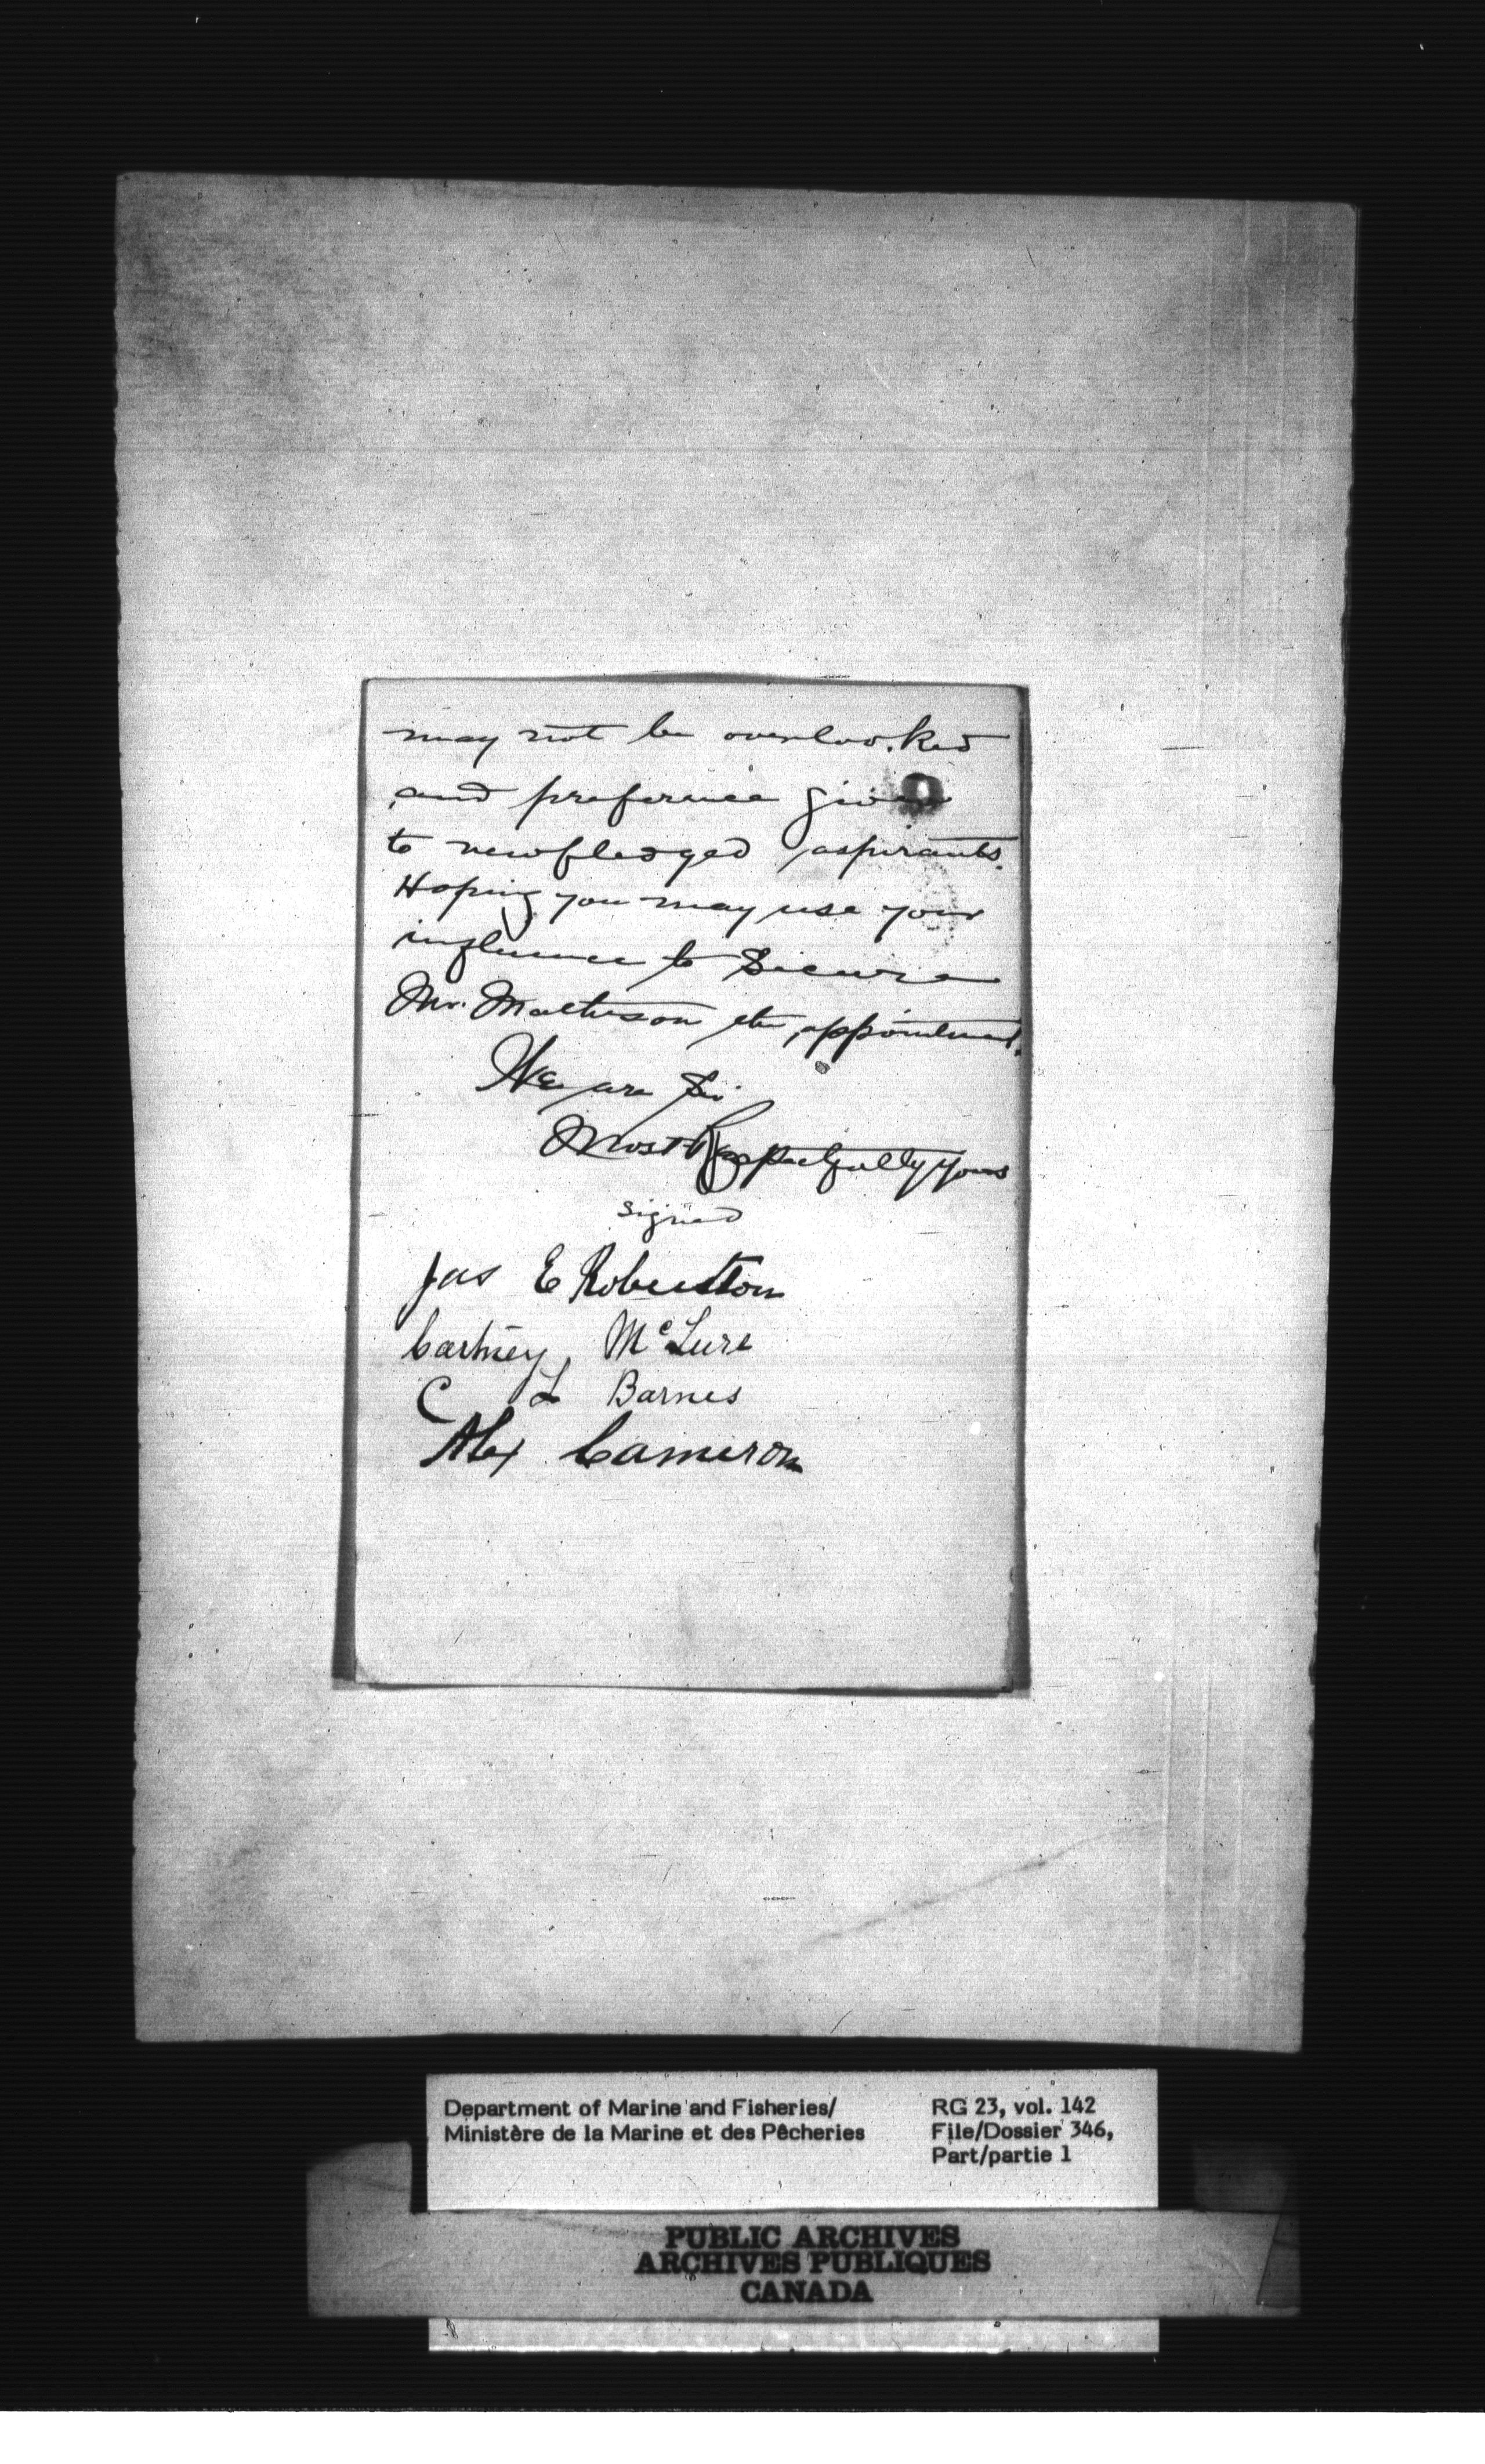 may not be overlooked
and preference given
to newfledged aspirants.
Hoping you may use your
influence to secure
Mr. Matheson the appointment.
We are Sir
Most Respectfully Yours
signed
Jas E Robertson
Cartney, McLure
C L Barnes
Alex Cameron
Department of Marine and Fisheries/
Ministère de la Marine et des Pêcheries
RG 23, vol. 142
File/Dossier 346,
Part/partie 1
PUBLIC ARCHIVES
ARCHIVES PUBLIQUES
CANADA